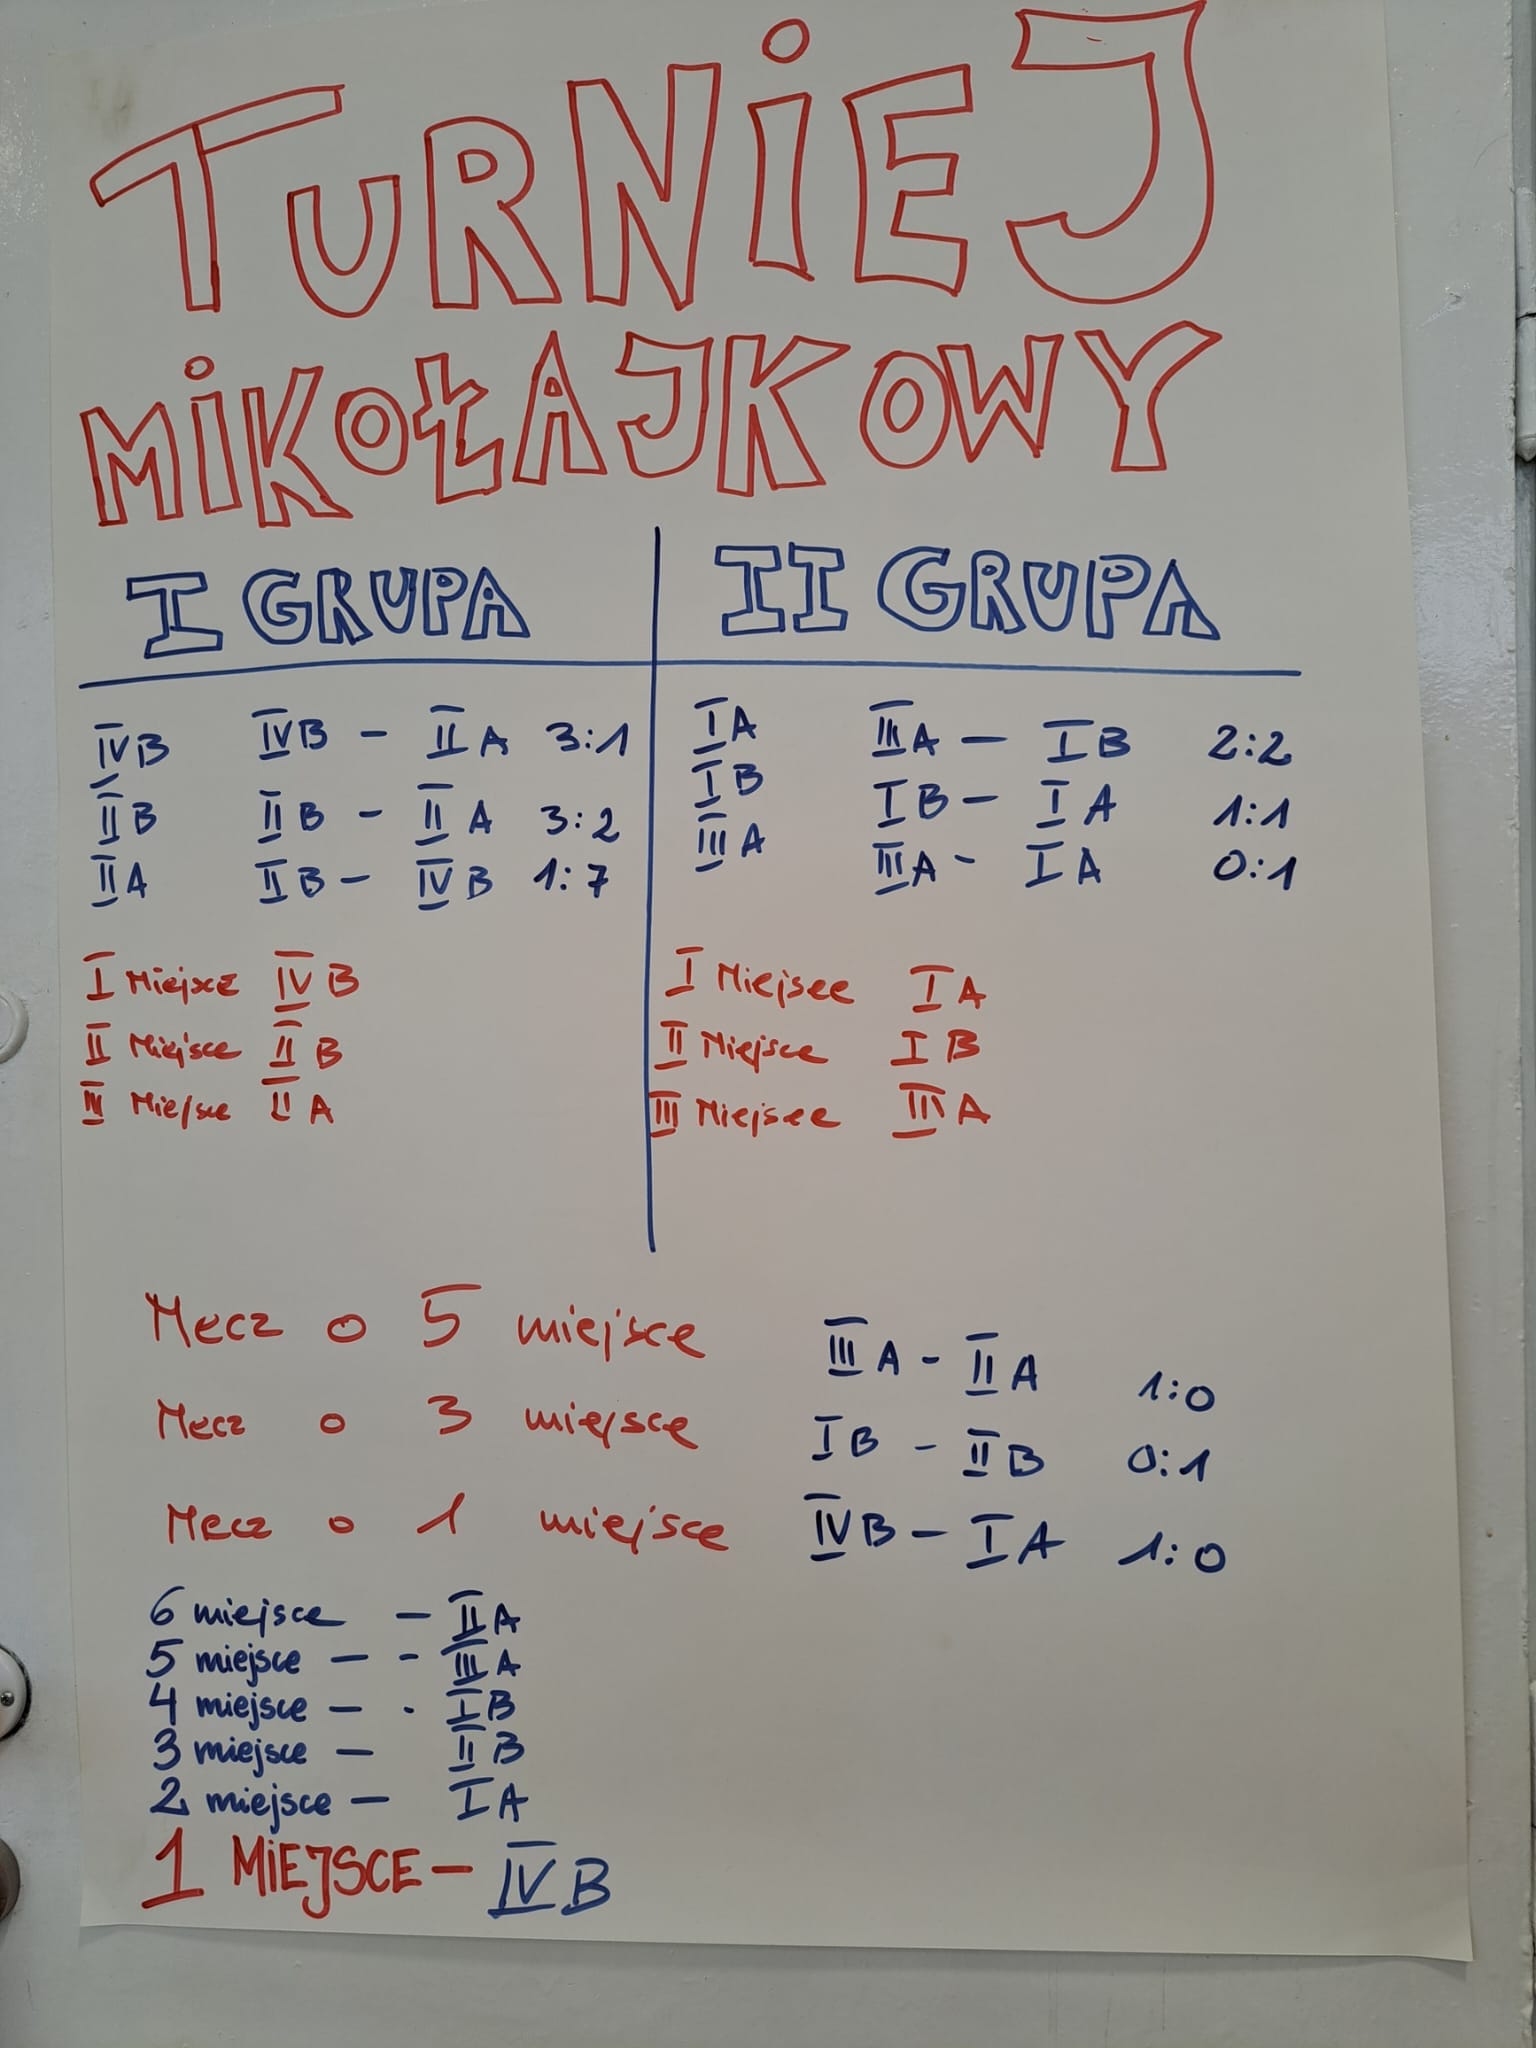 TURNiEJ
MiKOŁAJKOWY
I GRUPA
IVB IVB - II A 3:1
II B II B - II A 3:2
II A II B - IV B 1:7
I Miejsce IV B
II Miejsce II B
III Miejsce II A
II GRUPA
I A III A - I B 2:2
I B I B - I A 1:1
III A III A - I A 0:1
I Miejsce I A
II Miejsce I B
III Miejsce III A
Mecz o 5 miejsce III A - II A 1:0
Mecz o 3 miejsce I B - II B 0:1
Mecz o 1 miejsce IV B - I A 1:0
6 miejsce - II A
5 miejsce - - III A
4 miejsce - - I B
3 miejsce - II B
2 miejsce - I A
1 MiEJSCE - IV B